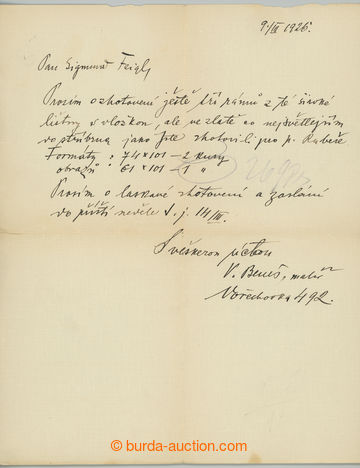 9/III 1926.
Pan Sigmund Feigl
Prosím o zhotovení ještě tří rámů z té široké
lištny s vložkou ale ve zlatě co nejsvětlejším
do stříbrna jako jste zhotovili pro p.
Formáty : 74 x 101 – 2 kusy
obrazů : 61 x 101 – 1 "
Prosím o laskavé zhotovení a zaslání
do příští neděle t. j. 14/III.
S veškerou úctou
V. Beneš, malíř
Ořechovka 492.
burda-auction.com